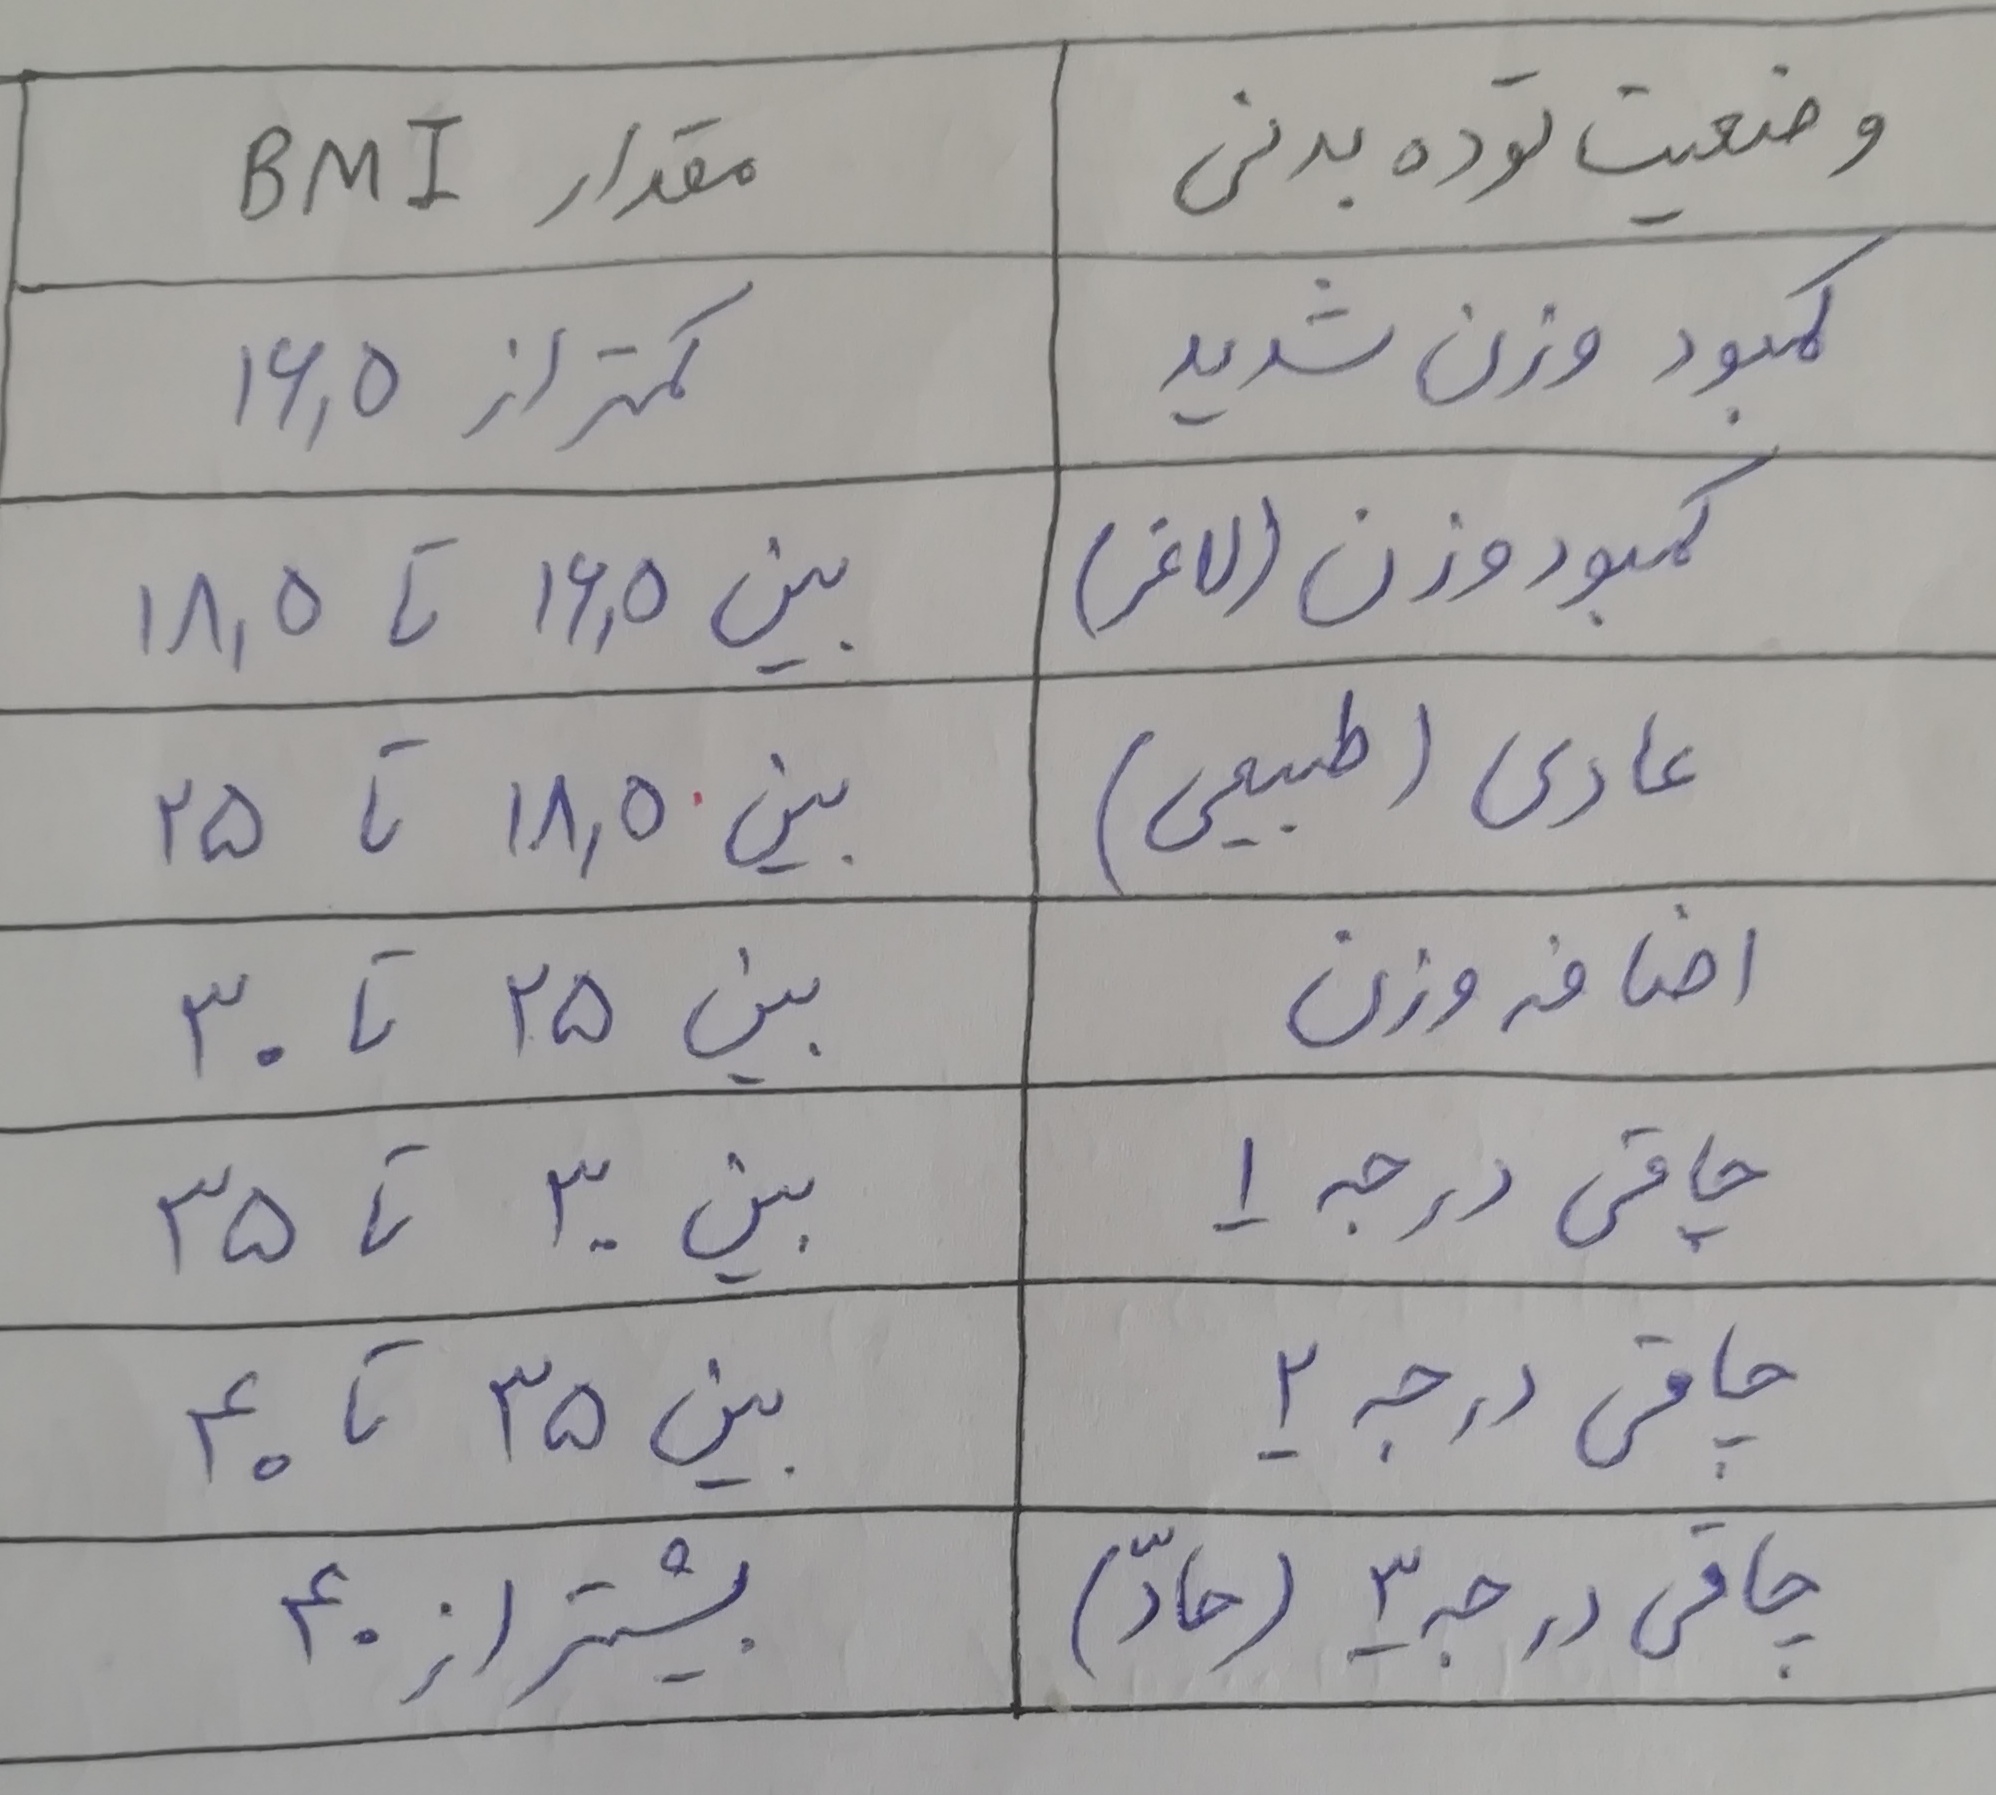 وضعیت توده بدنی مقدار BMI
کمبود وزن شدید کمتر از ۱۶,۵
کمبود وزن (لاغر) بین ۱۶,۵ تا ۱۸,۵
عادی (طبیعی) بین ۱۸,۵ تا ۲۵
اضافه وزن بین ۲۵ تا ۳۰
چاقی درجه ۱ بین ۳۰ تا ۳۵
چاقی درجه ۲ بین ۳۵ تا ۴۰
چاقی درجه ۳ (حادّ) بیشتر از ۴۰